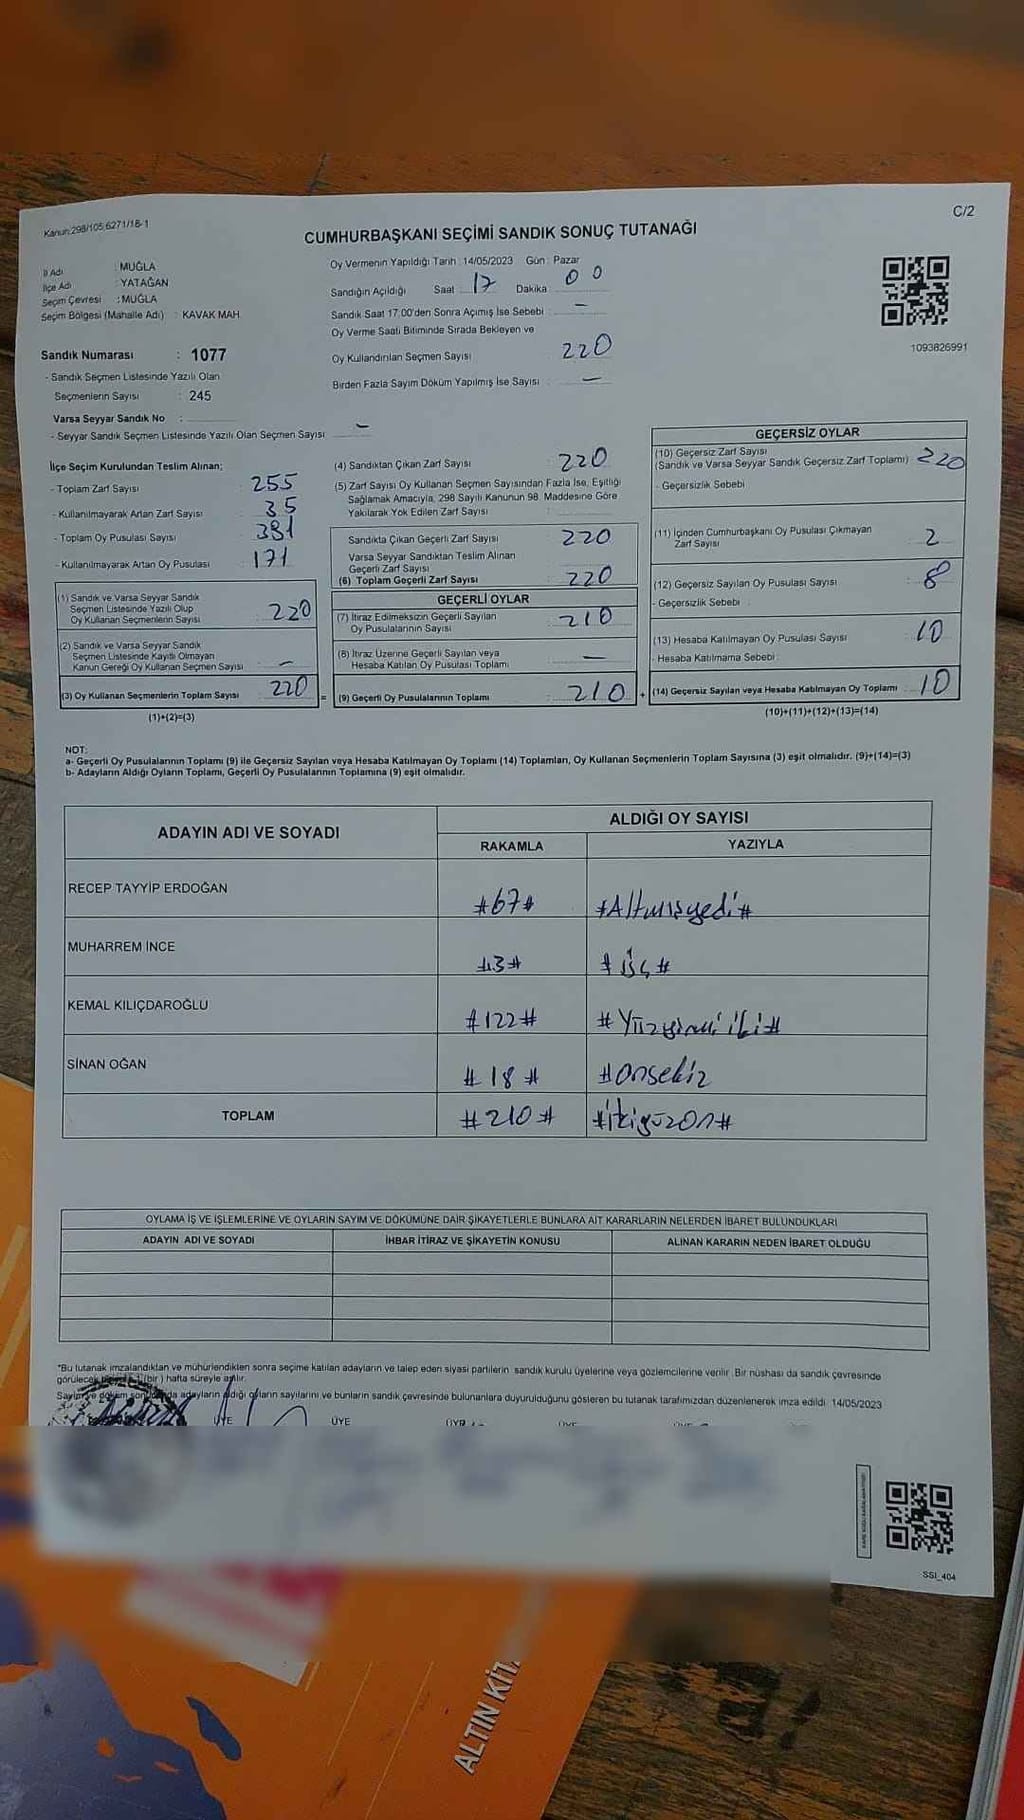 Kanun:298/105;6271/18-1
C/2
CUMHURBAŞKANI SEÇİMİ SANDIK SONUÇ TUTANAĞI
İl Adı : MUĞLA
İlçe Adı : YATAĞAN
Seçim Çevresi : MUĞLA
Seçim Bölgesi (Mahalle Adı) : KAVAK MAH.
Sandık Numarası : 1077
- Sandık Seçmen Listesinde Yazılı Olan
Seçmenlerin Sayısı : 245
Varsa Seyyar Sandık No :
- Seyyar Sandık Seçmen Listesinde Yazılı Olan Seçmen Sayısı –
Oy Vermenin Yapıldığı Tarih : 14/05/2023 Gün : Pazar
Sandığın Açıldığı Saat 17 Dakika 00
Sandık Saat 17.00'den Sonra Açımış İse Sebebi : –
Oy Verme Saati Bitiminde Sırada Bekleyen ve
Oy Kullandırılan Seçmen Sayısı : 220
Birden Fazla Sayım Döküm Yapılmış İse Sayısı : –
1093826991
İlçe Seçim Kurulundan Teslim Alınan;
- Toplam Zarf Sayısı : 255
- Kullanılmayarak Artan Zarf Sayısı : 35
- Toplam Oy Pusulası Sayısı : 381
- Kullanılmayarak Artan Oy Pusulası : 171
(1) Sandık ve Varsa Seyyar Sandık
Seçmen Listesinde Yazılı Olup
Oy Kullanan Seçmenlerin Sayısı : 220
(2) Sandık ve Varsa Seyyar Sandık
Seçmen Listesinde Kayıtlı Olmayan
Kanun Gereği Oy Kullanan Seçmen Sayısı –
(3) Oy Kullanan Seçmenlerin Toplam Sayısı 220 =
(1)+(2)=(3)
(4) Sandıktan Çıkan Zarf Sayısı : 220
(5) Zarf Sayısı Oy Kullanan Seçmen Sayısından Fazla İse, Eşitliği
Sağlamak Amacıyla, 298 Sayılı Kanunun 98. Maddesine Göre
Yakılarak Yok Edilen Zarf Sayısı :
Sandıkta Çıkan Geçerli Zarf Sayısı : 220
Varsa Seyyar Sandıktan Teslim Alınan
Geçerli Zarf Sayısı
(6) Toplam Geçerli Zarf Sayısı : 220
GEÇERLİ OYLAR
(7) İtiraz Edimeksizin Geçerli Sayılan
Oy Pusulalarının Sayısı : 210
(8) İtiraz Üzerine Geçerli Sayılan veya
Hesaba Katılan Oy Pusulası Toplamı : –
(9) Geçerli Oy Pusulalarının Toplamı : 210 +
GEÇERSİZ OYLAR
(10) Geçersiz Zarf Sayısı
(Sandık ve Varsa Seyyar Sandık Geçersiz Zarf Toplamı) 220
- Geçersizlik Sebebi
(11) İçinden Cumhurbaşkanı Oy Pusulası Çıkmayan
Zarf Sayısı : 2
(12) Geçersiz Sayılan Oy Pusulası Sayısı : 8
- Geçersizlik Sebebi :
(13) Hesaba Katılmayan Oy Pusulası Sayısı : 10
- Hesaba Katılmama Sebebi :
(14) Geçersiz Sayılan veya Hesaba Katılmayan Oy Toplamı : 10
(10)+(11)+(12)+(13)=(14)
NOT:
a- Geçerli Oy Pusulalarının Toplamı (9) ile Geçersiz Sayılan veya Hesaba Katılmayan Oy Toplamı (14) Toplamları, Oy Kullanan Seçmenlerin Toplam Sayısına (3) eşit olmalıdır. (9)+(14)=(3)
b- Adayların Aldığı Oyların Toplamı, Geçerli Oy Pusulalarının Toplamına (9) eşit olmalıdır.
ADAYIN ADI VE SOYADI
ALDIĞI OY SAYISI
RAKAMLA YAZIYLA
RECEP TAYYİP ERDOĞAN #67# #Altmışyedi#
MUHARREM İNCE #3# #üç#
KEMAL KILIÇDAROĞLU #122# #Yüzyirmi iki#
SİNAN OĞAN #18# #Onsekiz
TOPLAM #210# #ikiyüzon#
OYLAMA İŞ VE İŞLEMLERİNE VE OYLARIN SAYIM VE DÖKÜMÜNE DAİR ŞİKAYETLERLE BUNLARA AİT KARARLARIN NELERDEN İBARET BULUNDUKLARI
ADAYIN ADI VE SOYADI İHBAR İTİRAZ VE ŞİKAYETİN KONUSU ALINAN KARARIN NEDEN İBARET OLDUĞU
"Bu tutanak imzalandıktan ve mühürlendikten sonra seçime katılan adayların ve talep eden siyasi partilerin sandık kurulu üyelerine veya gözlemcilerine verilir. Bir nüshası da sandık çevresinde
görülecek 1 (bir) hafta süreyle asılır.
Sayım ve döküm adayların aldığı oyların sayılarını ve bunların sandık çevresinde bulunanlara duyurulduğunu gösteren bu tutanak tarafımızdan düzenlenerek imza edildi. 14/05/2023
ÜYE ÜYE ÜYE
SSI_404
ALTIN